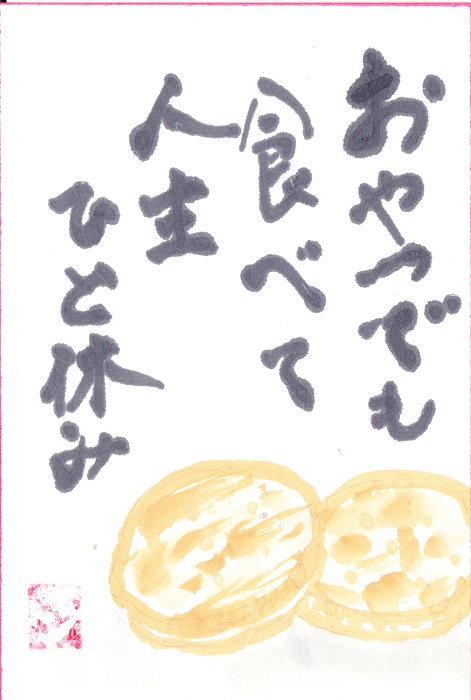 おやつでも
食べて
人生
ひと休み